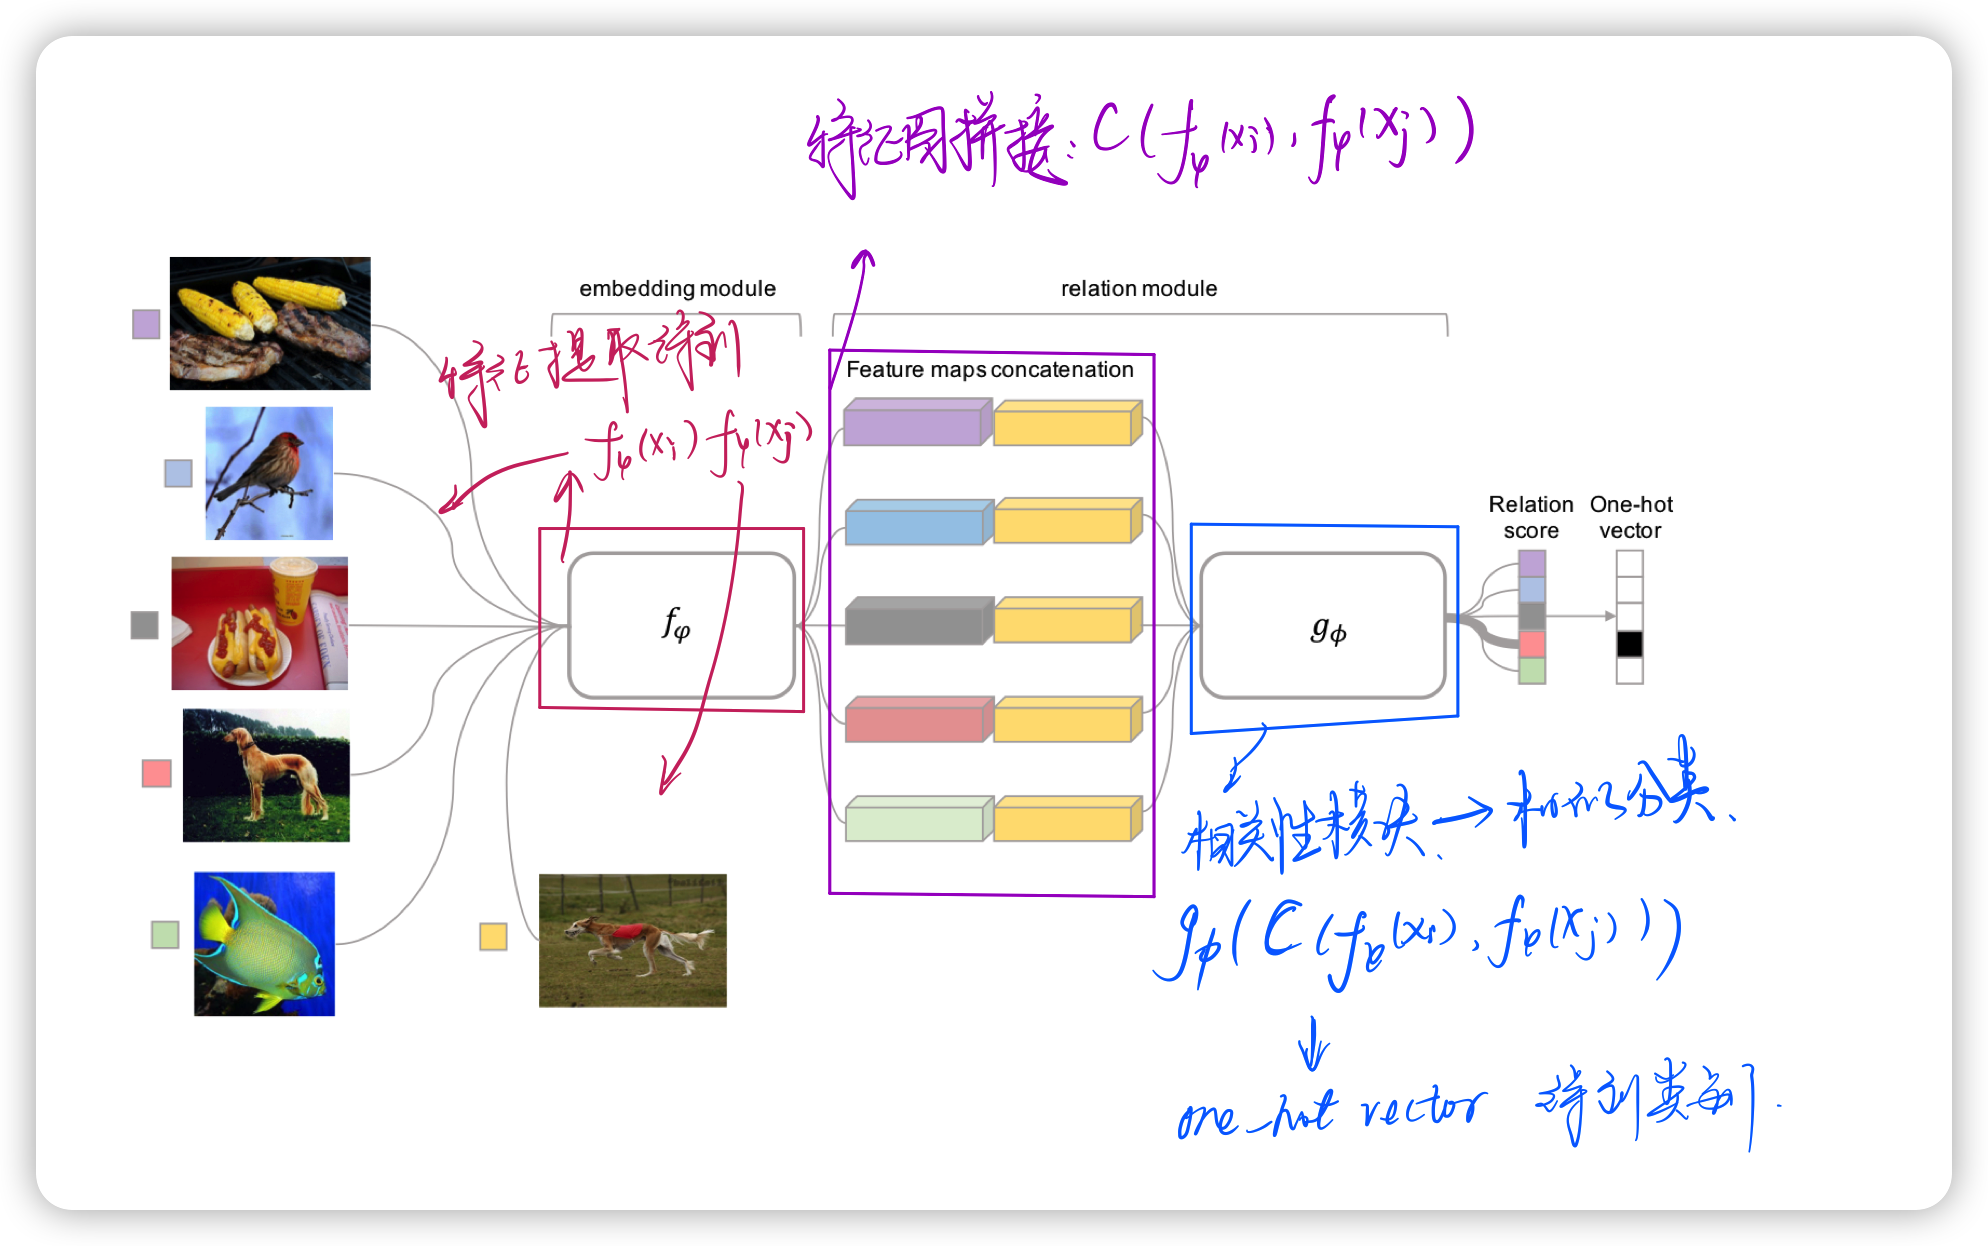 特征图拼接: C(fφ(xi), fφ(xj))
embedding module
relation module
特征提取得到
fφ(xi) fφ(xj)
Feature maps concatenation
Relation score
One-hot vector
fφ
gϕ
相关性模块. → 打分分类.
gϕ(C(fφ(xi), fφ(xj)))
one-hot vector 得到类别.